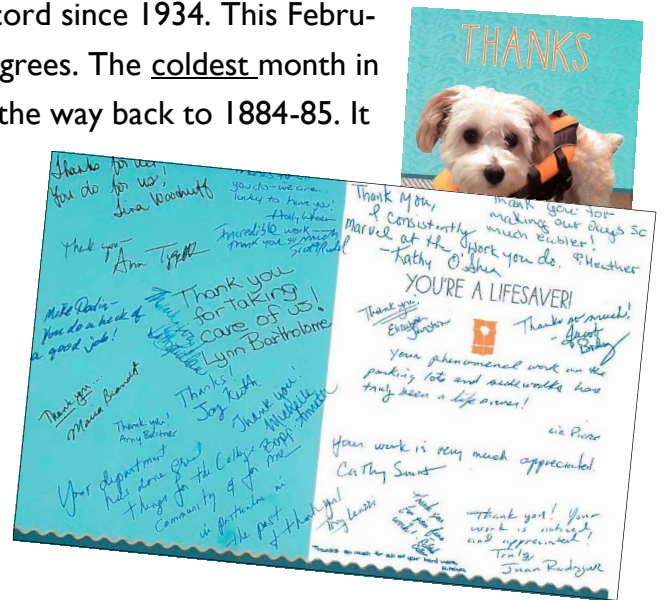 cord since 1934. This Febru-
grees. The coldest month in
the way back to 1884-85. It
THANKS
Thanks for all
you do for us!
Tina Woodruff
you do - we are
lucky to have you!
Incredible work -
Thank you so much
Thank you -
Ann
Mike Dadin -
You do a heck of
a good job!
Thank you
for taking
care of us!
Lynn Bartholome
Thank you...
Maria Brandt
Thanks!
Joy Kieth
Thank you!
Michelle
Thank you!
Amy
Your department
has done great
things for the College
Community & for me
in particular in
the past
thank you!
Thank you,
I consistently
marvel at the work you do.
- Kathy O'Shea
Thank you for
making our days so
much easier!
Heather
YOU'RE A LIFESAVER!
Thank you!
Thanks so much!
Jacob
Your phenomenal work on the
parking lots and sidewalks has
truly been a life saver!
Liz Pierce
Your work is very much appreciated.
Cathy Smart
Thank you! Your
work is noticed
and appreciated!
Truly,
Juan Rodriguez
Thanks so much for all of your hard work.